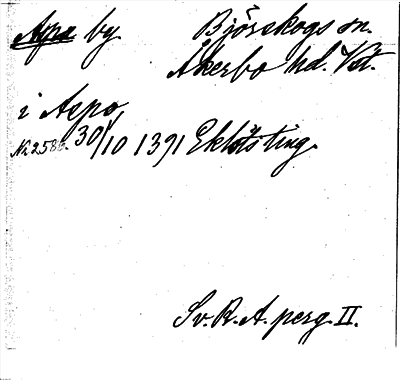 Aspa by. Björskogs sn.
Åkerbo hd. Vstl.
i Aspo
Nr 2583. 30/10 1391 Eklöts ting.
Sv. R. A. perg. II.